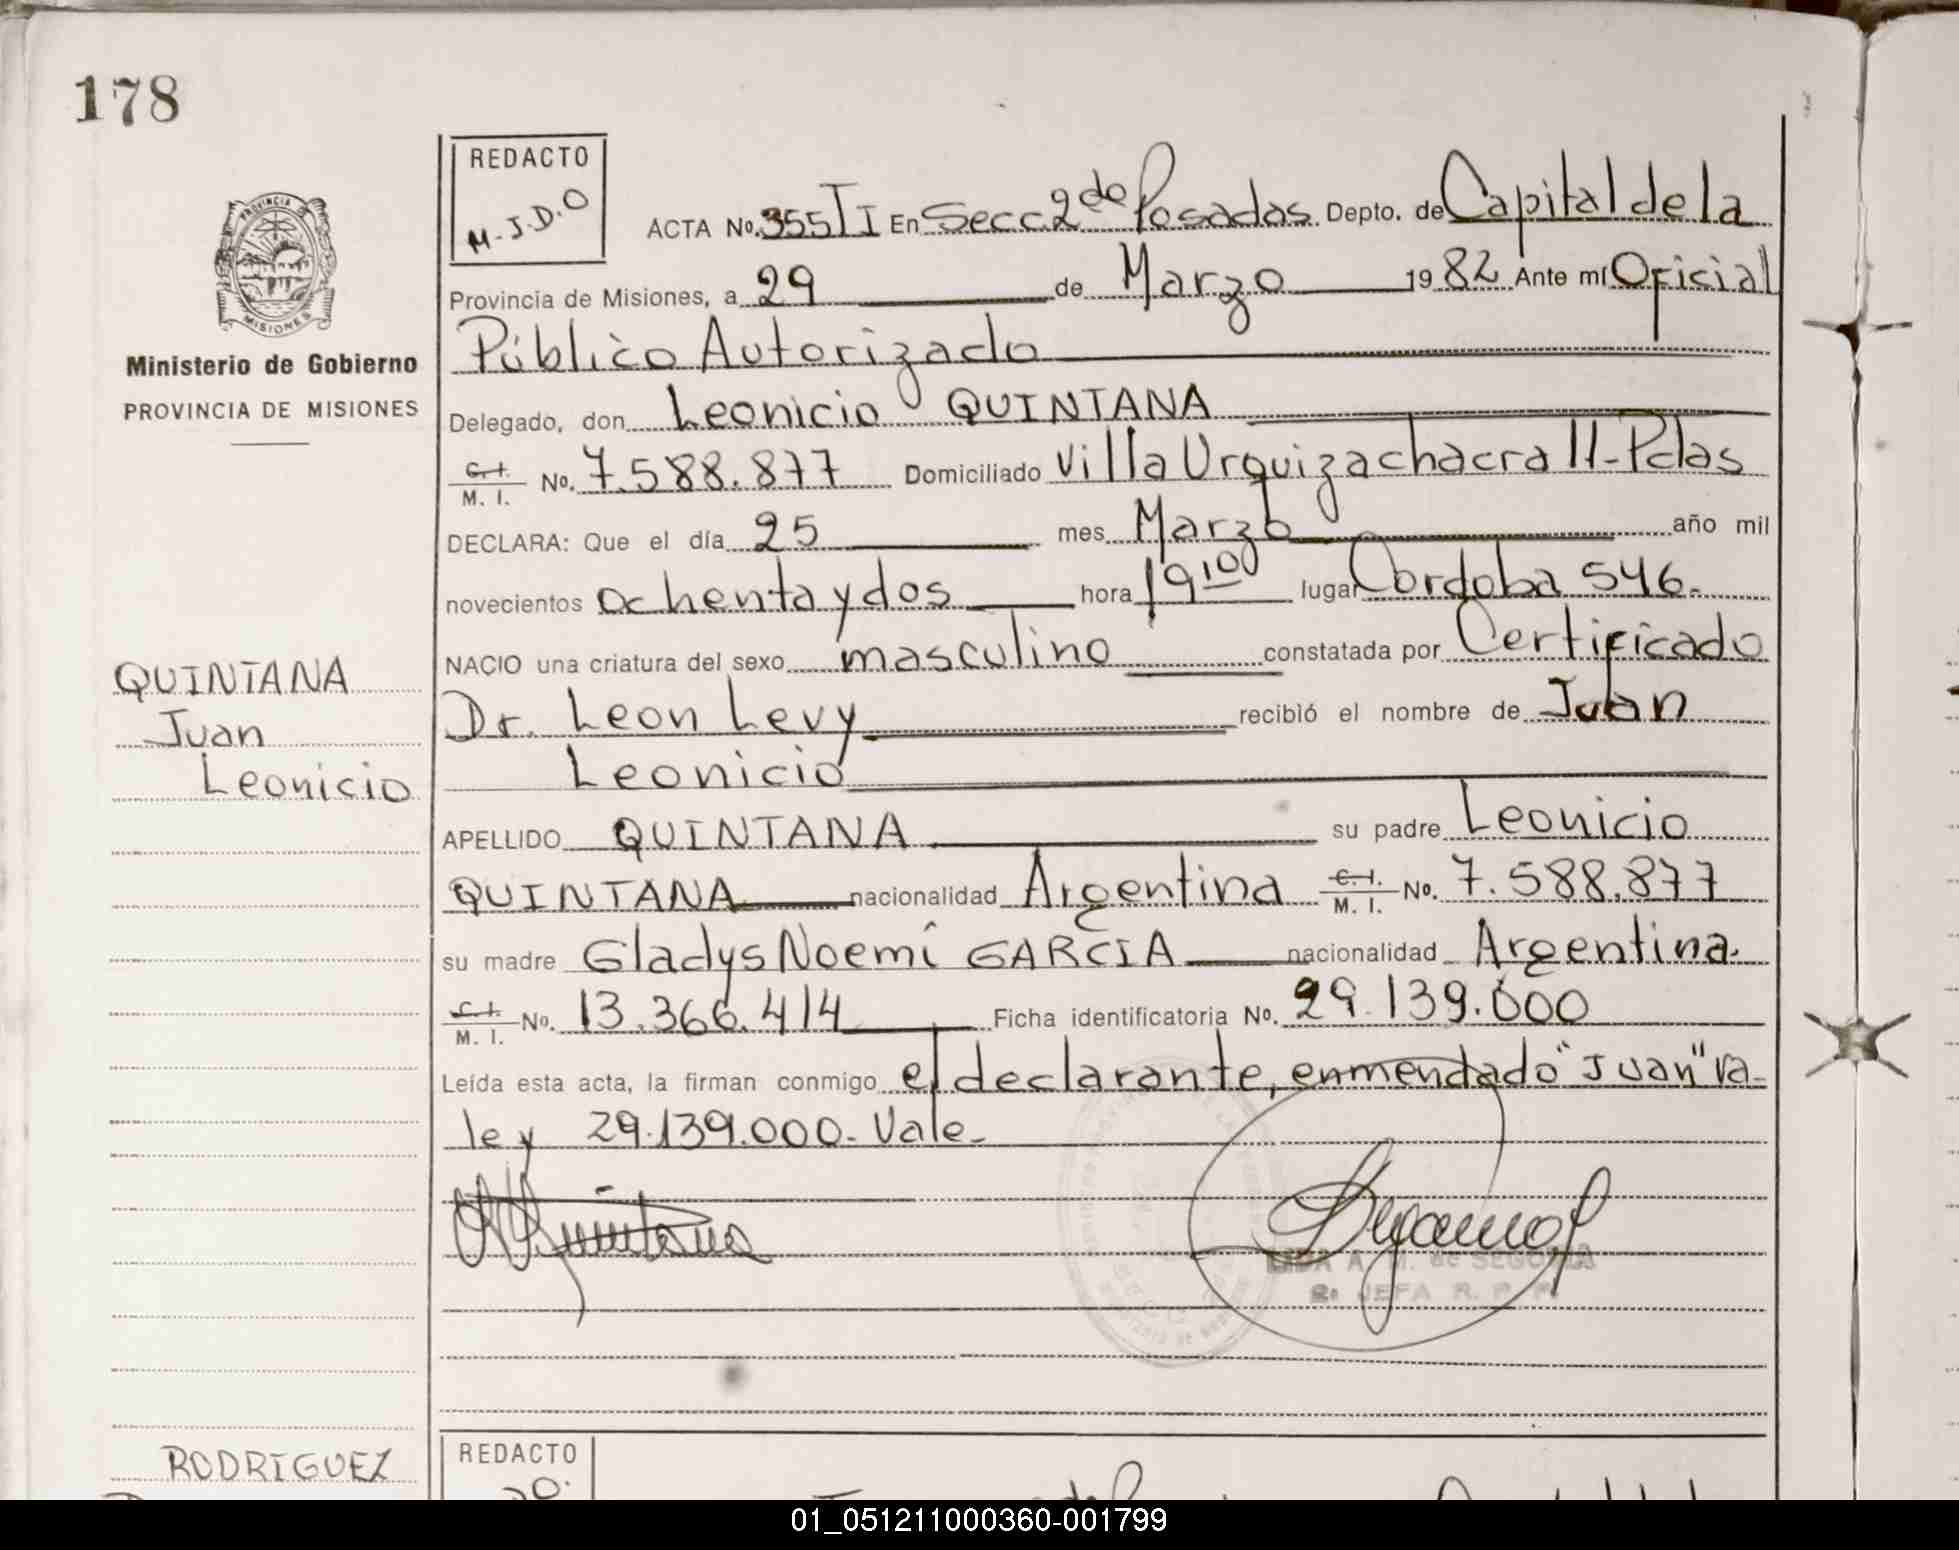 178
REDACTO
M.J.D.O
PROVINCIA
MISIONES
Ministerio de Gobierno
PROVINCIA DE MISIONES
ACTA No. 355 TI En Secc. 2 de Posadas. Depto. de Capital de la
Provincia de Misiones, a 29 de Marzo 1982 Ante mí Oficial
Público Autorizado
Delegado, don Leonicio QUINTANA
C.I. M. I. No. 7.588.877 Domiciliado Villa Urquiza chacra 11-Pdas
DECLARA: Que el día 25 mes Marzo año mil
novecientos ochenta y dos hora 19,00 lugar Cordoba 546.
NACIO una criatura del sexo masculino constatada por Certificado
Dr. Leon Levy recibió el nombre de Juan
Leonicio
QUINTANA
Juan
Leonicio
APELLIDO QUINTANA su padre Leonicio
QUINTANA nacionalidad Argentina C.I. M. I. No. 7.588.877
su madre Gladys Noemí GARCIA nacionalidad Argentina.
C.I. M. I. No. 13.366.414 Ficha identificatoria No. 29.139.000
Leída esta acta, la firman conmigo el declarante, enmendado "Juan" va-
le y 29.139.000. Vale.
Quintana
LIDA A. M. de SEGOVIA
2a JEFA R. P. P.
RODRIGUEZ
REDACTO
01_051211000360-001799